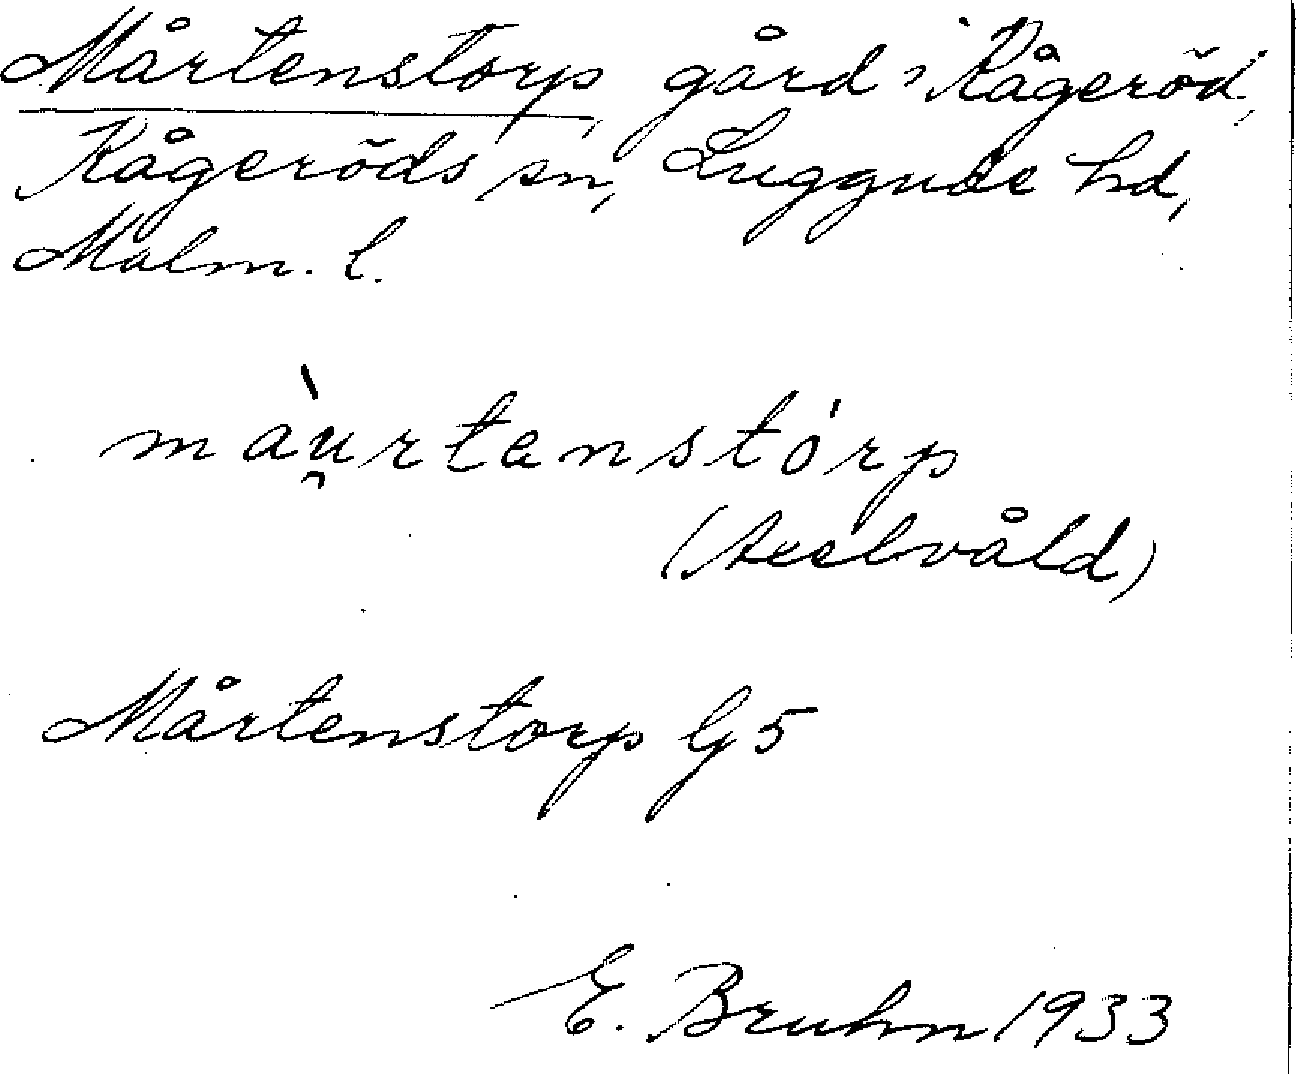 Mårtenstorp, gård i Kågeröd,
Kågeröds sn, Luggude hd,
Malm. l.
màu̯rtenstórp
(Axelvåld)
Mårtenstorp G5
E. Bruhn 1933